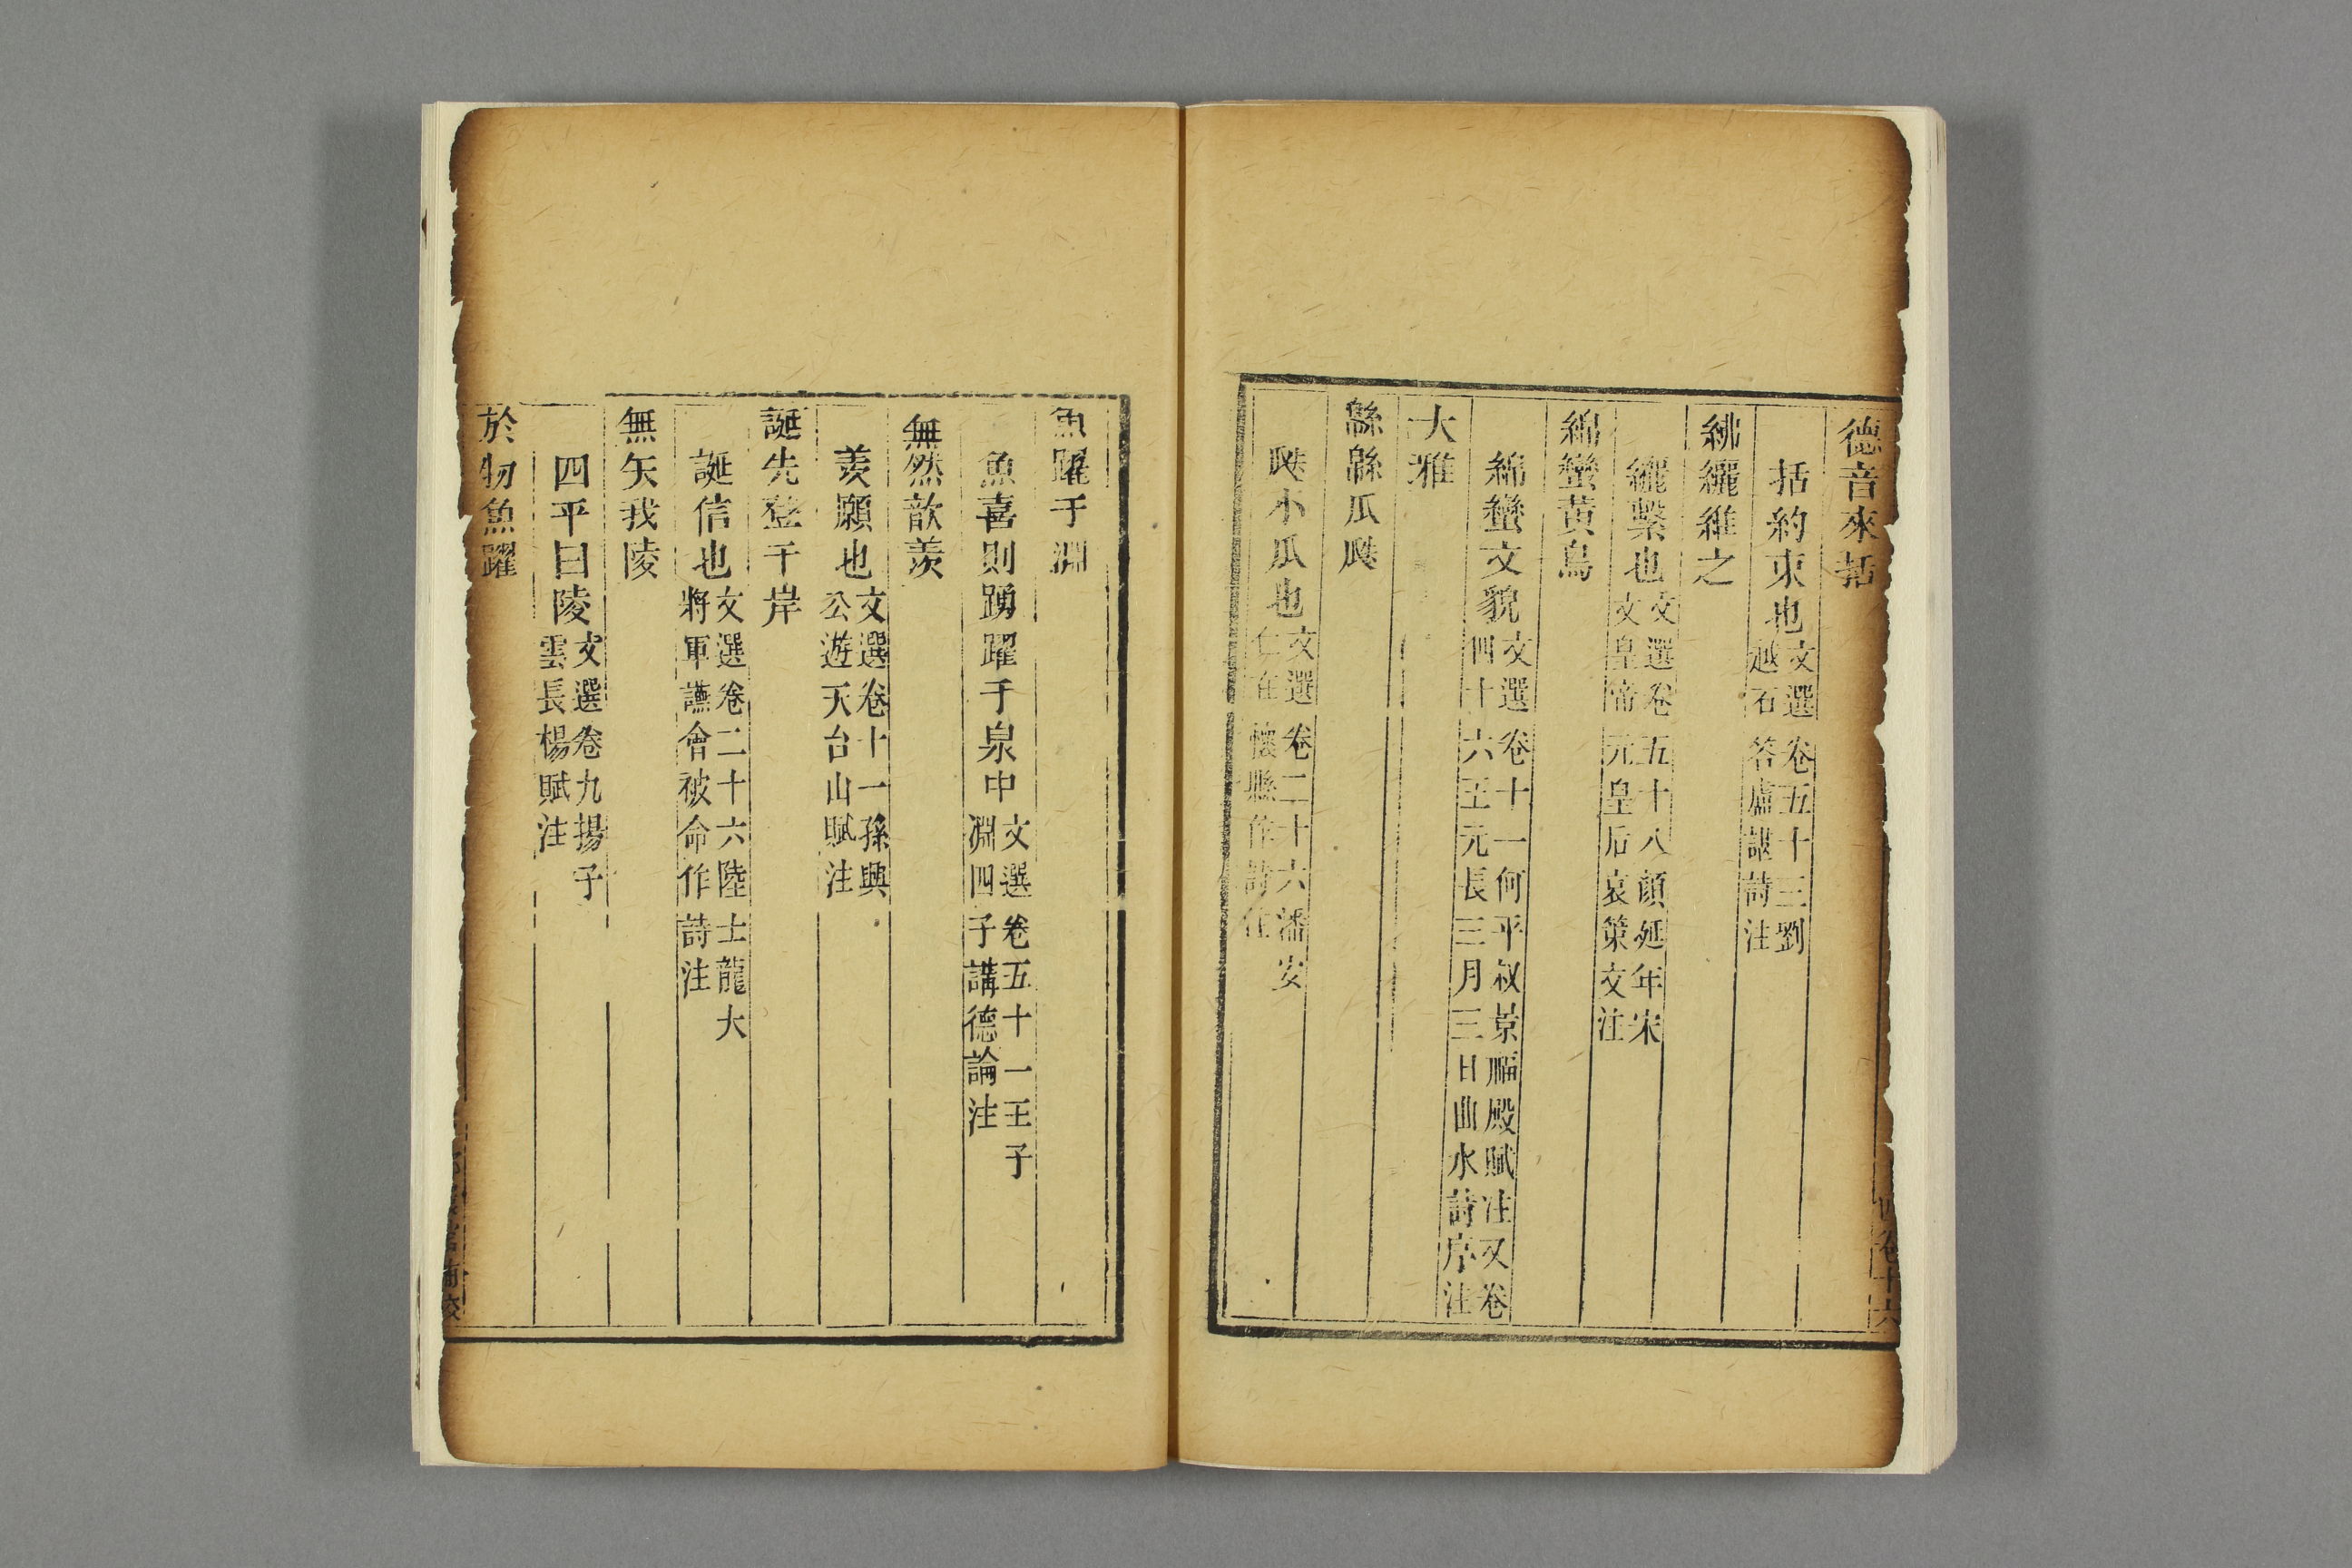 德音來括
括約束也文選卷五十三劉
越石答盧諶詩注
紼纚維之
纚繫也文選卷五十八顔延年宋
文皇帝元皇后哀策文注
綿蠻黃鳥
綿蠻文貌文選卷十一何平叔景福殿賦注又卷
四十六王元長三月三日曲水詩序注
大雅
緜緜瓜瓞
瓞小瓜也文選卷二十六潘安
仁在懷縣作詩注
卷十六
魚躍于淵
魚喜則踴躍于泉中文選卷五十一王子
淵四子講德論注
無然歆羨
羨願也文選卷十一孫興
公遊天台山賦注
誕先登于岸
誕信也文選卷二十六陸士龍大
將軍讌會被命作詩注
無矢我陵
四平曰陵文選卷九揚子
雲長楊賦注
於牣魚躍